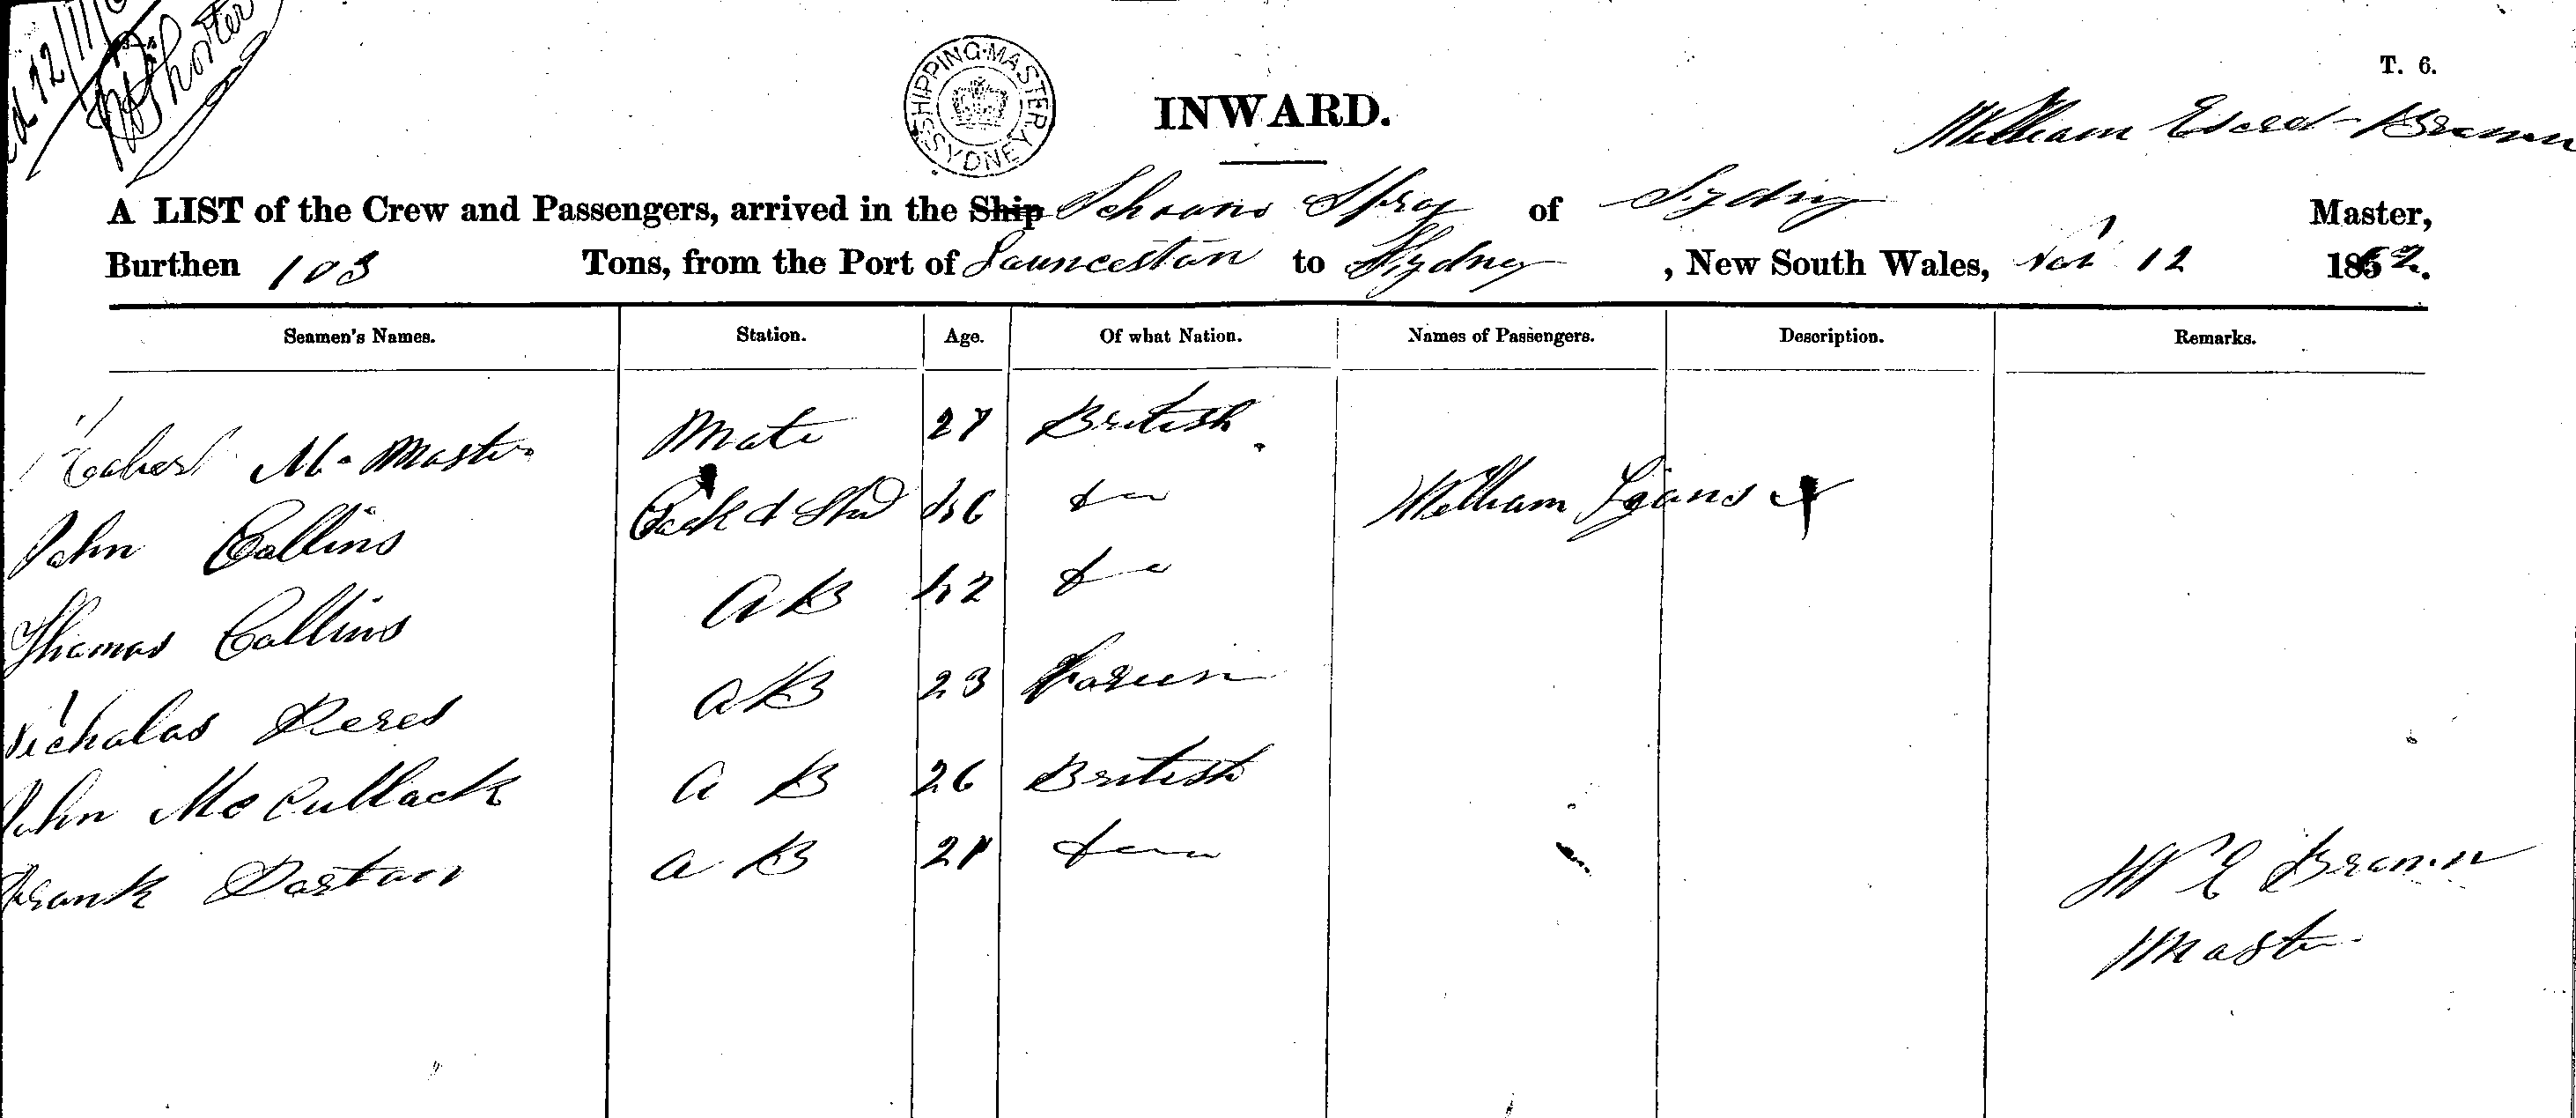 d 12/11/6
SHIPPING MASTER SYDNEY
INWARD.
T. 6.
William Brown
A LIST of the Crew and Passengers, arrived in the Ship Schoona Spray of Sydney Master,
Burthen 103 Tons, from the Port of Launceston to Sydney, New South Wales, Nov 12 1862.
Seamen's Names. Station. Age. Of what Nation. Names of Passengers. Description. Remarks.
Robert Mc Master Mate 27 British
John Collins Cook & Std 46 do William Lyons
Thomas Collins AB 42 do
Nicholas Peres AB 23 Foreign
John McCullack AB 26 British
Frank AB 21 do
W E Brown
Master